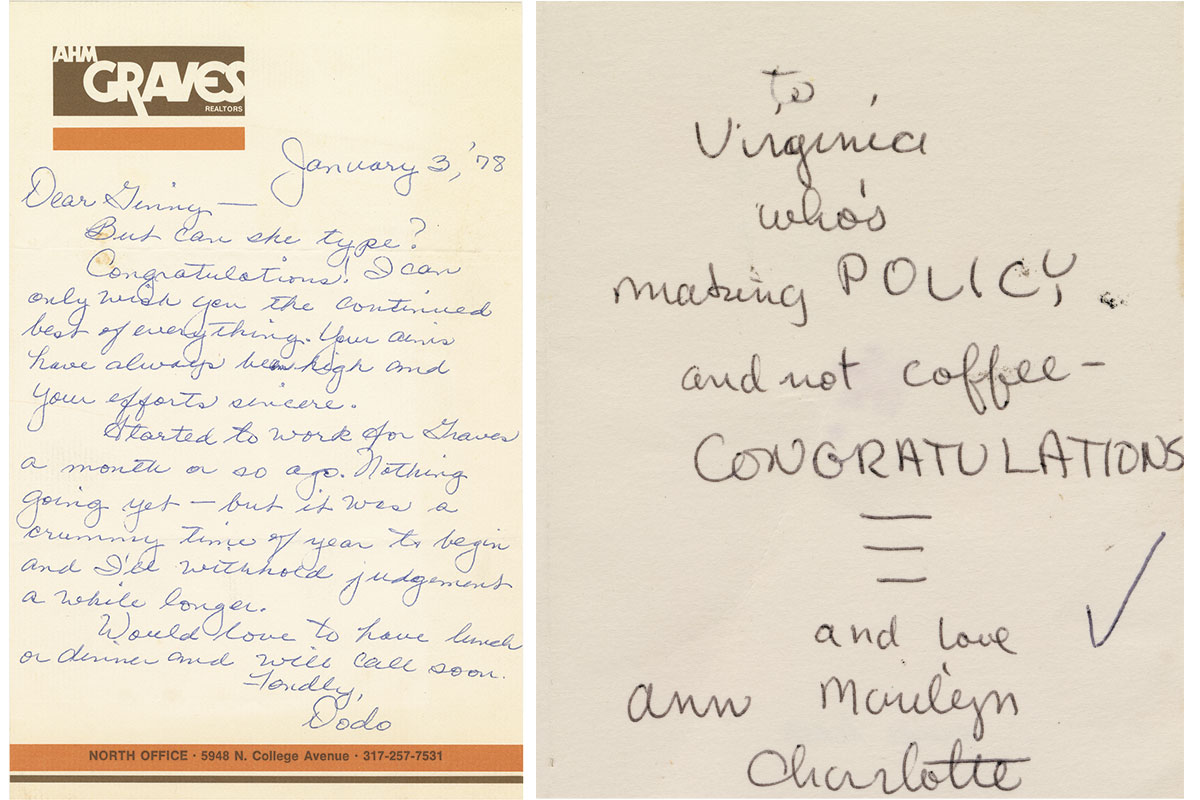 AHM
GRAVES
REALTORS
January 3, '78
Dear Ginny —
But can she type?
Congratulations! I can
only wish you the continued
best of everything. Your aims
have always been high and
your efforts sincere.
Started to work for Graves
a month or so ago. Nothing
going yet — but it was a
crummy time of year to begin
and I'll withhold judgement
a while longer.
Would love to have lunch
or dinner and will call soon.
Fondly,
Dodo
NORTH OFFICE · 5948 N. College Avenue · 317-257-7531
to
Virginia
who's
making POLICY
and not coffee –
CONGRATULATIONS
and love
ann Marilyn
Charlotte